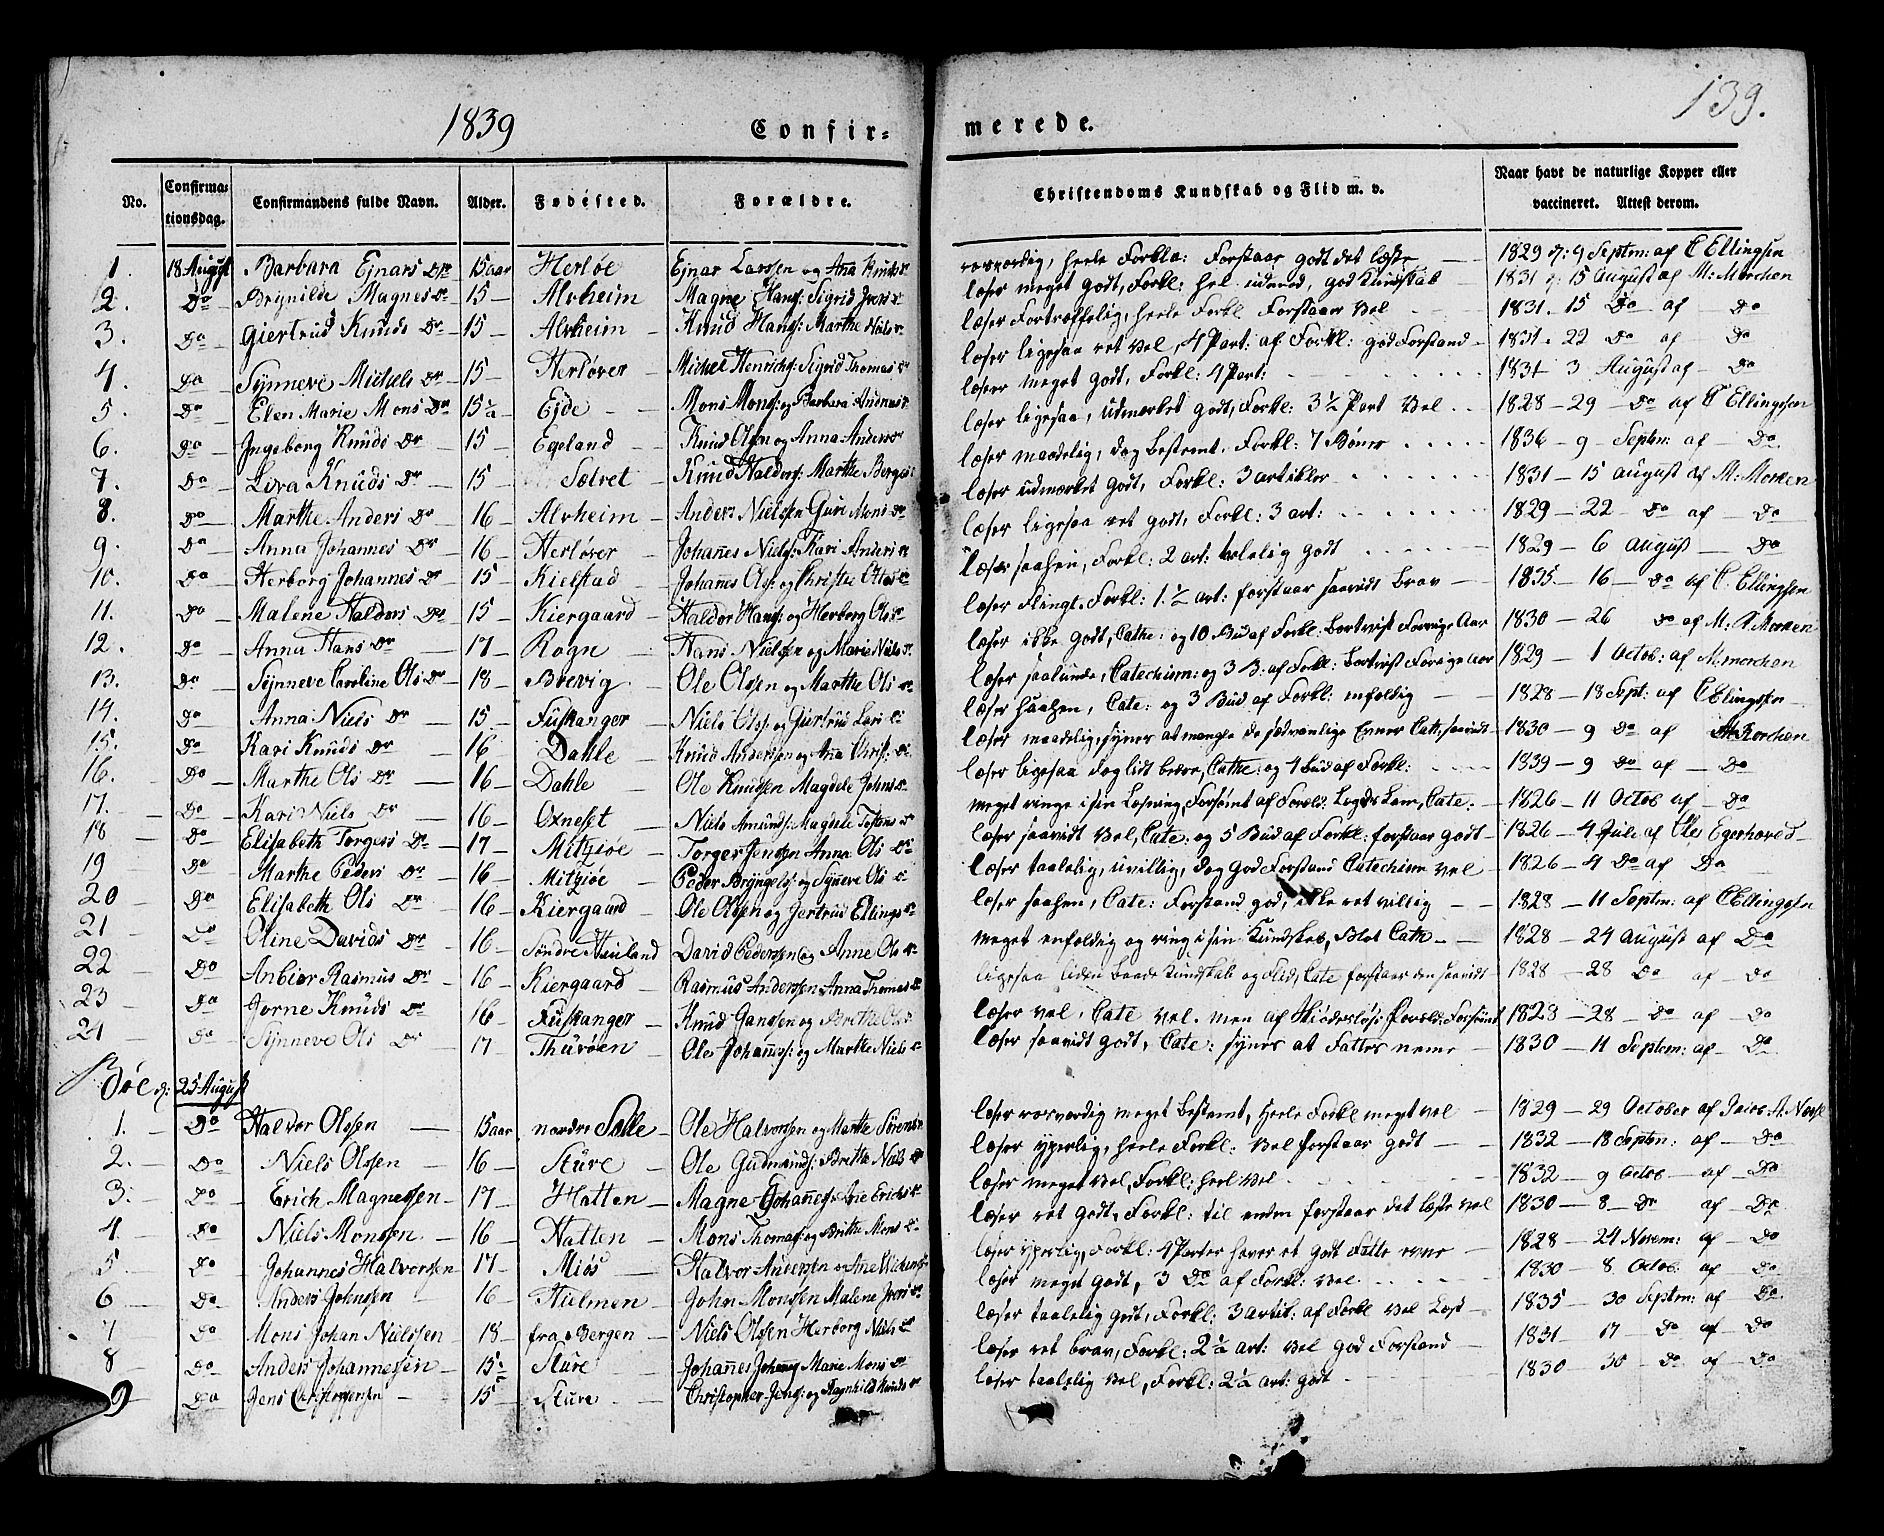 139.
1839 Confir- merede.
No. Confirma- tionsdag. Confirmandens fulde Navn. Alder. Fødested. Forældre. Christendoms Kundskab og Flid m. v. Naar havt de naturlige Kopper eller vaccineret. Attest derom.
1. 18 August Barbara Ejnars Dr 15 aar Herløe Ejnar Larssen og Ana Knuds Dr heele Forkla: Forstaar godt det læste 1829 d: 9 Septm: af C Ellingsen
2. Do Brynilde Magnes Dr 15 Alvheim Magne Hans: Sigrid Ivers Dr læser meget godt, Forkl: hel udmed, god Kundskab 1831 d: 15 August af M: Morchen
3. Do Giertrud Knuds Dr 15 Alvheim Knud Hans: Marthe Niels Dr læser Fortræffelig, heele Forkl Forstaar vel 1831. 15 Do af Do
4. Do Synneve Michels Dr 15 Herløver Michel Henrichs: Sigrid Thomas Dr læser ligesaa ret vel, 4 Part: af Forkl: god Forstand 1831. 22 Do af Do
5. Do Elen Marie Mons Dr 15 1/2 Ejde Mons Mons: og Barbara Andreas Dr læser meget godt, Forkl: 4 Part: 1831 3 August af Do
6. Do Ingeborg Knuds Dr 15 Egeland Knud Olsen og Anna Anders Dr læser ligesaa, udmærket godt, Forkl: 3 1/2 Part vel 1828 - 29 Do af C Ellingsen
7. Do Liva Knuds Dr 15 Sætret Knud Haldors: Marthe Børges læser maadelig, dog bestemt. Forkl: 7 Bønner 1836 - 9 Septm: af Do
8. Do Marthe Anders Dr 16 Alvheim Anders Nielsen Guri Mons Dr læser udmærket godt, Forkl: 3 artikler 1831 - 15 August af M: Morken
9. Do Anna Johannes Dr 16 Herløver Johanes Niels: Kari Anders Dr læser ligesaa ret godt, Forkl: 3 art: 1829 - 22 Do af Do
10. Do Herborg Johannes Dr 15 Kielstad Johanes Ols: og Christie Ottos Dr læser saahen, Forkl: 2 art: godt 1829 - 6 August Do
11. Do Malene Haldors Dr 15 Kiergaard Haldor Hans: og Herborg Ols Dr læser Flingt. Forkl: 1 1/2 art: forstaar saavidt brav 1835 - 16 Do af C. Ellingsen
12. Do Anna Hans Dr 17 Rogn Hans Nielsen og Marie Niels Dr læser ikke godt, Cathe: og 10 Bud af Forkl. bortvist Forrige Aar 1830 - 26 Do af M: Morken
13. Do Synneve Caroline Ols Dr 18 Brevig Ole Olssen og Marthe Ols Dr læser saalunde, Catechism: og 3 B. af Forkl: bortvist Forrige Aar 1829 - 1 Octob: af M: morchen
14. Do Anna Niels Dr 15 Fuskanger Niels Ols: og Giertrud Lars Dr læser saahen, Cate: og 3 Bud af Forkl: enfoldig 1828 - 18 Sept: af C Ellingsen
15. Do Kari Knuds Dr 16 Dahle Knud Anderssen og Ana Chris: Dr læser maadelig, synes at mangle de sædvanlige Evner Cath: saavidt 1830 - 9 Do af M Korchen
16. Do Marthe Ols Dr 16 Dahle Ole Knudsen Magdele Johns Dr læser ligesaa dog lidt bedre, Cathe: og 4 Bud af Forkl: 1839 - 9 Do af Do
17. Do Kari Niels Dr 16 Oxneset Niels Amunds: Magdele Dr meget ringe i sin Læsning, Forsømt af Foræld: Cate: 1826 - 11 Octob af Do
18 Do Elisabeth Torgers Dr 17 Mitziøe Torger Jenssen Anna Ols Dr læser saavidt vel, Cate: og 5 Bud af Forkl: forstaar godt 1826 - 4 Juli af Ole Egerhoved
19 Do Marthe Peders Dr 16 Mitziøe Peder Bryngels: og Syneve Ols Dr læser taalelig, uvillig, dog god Forstand Catechism vel 1826 - 4 Do af Do
20 Do Elisabeth Ols Dr 16 Kiergaard Ole Olssen og Gertrud Ellings Dr læser saahen, Cate: Forstand god, ikke ret villig 1828 - 11 Septm: af C Ellingssen
21 Do Oline Davids Dr 16 Søndre Hauland David Pederssen og Anne Ols Dr meget enfoldig og ring i sin Kundskab, Blot Cath 1828 - 24 August af Do
22 Do Anbiør Rasmus Dr 16 Kiergaard Rasmus Anderssen Anna Thomas Dr ligesaa liden baade Kundskab og Flid, Cate forstaar den saavidt 1828 - 28 Do af Do
23 Do Jorne Knuds Dr 16 Fuskanger Knud Janssen og Brithe Ols Dr læser vel, Cate vel. men af Skiødesløse: Foreld: Forsømt 1823 - 28 Do af Do
24 Do Synneve Ols Dr 17 Thurøen Ole Johannes: og Marthe Niels Dr læser saavidt godt, Cate: synes at Fattes neme 1830 - 11 Septem: af Do
Bøe d: 25 August
1. Do Halvor Olssen 15 aar nordre Sælle Ole Halvorssen og Marthe Sørens Dr læser meget bestemt, heele Forkl meget vel 1829 - 29 October af
2. Do Niels Olssen 16 Sture Ole Gudmunds: Brithe Niels Dr læser yperlig, heele Forkl: vel forstaar godt 1832 - 18 Septm: af Do
3. Do Erich Magnessen 17 Hatten Magne Johanes: Ane Erichs Dr læser meget vel, Forkl: heel vel 1832 9 Octob af Do
4 Do Niels Monssen 16 Hatten Mons Thomas: og Brithe Mons Dr læser ret godt, Forkl: til enden forstaar det læste vel 1830 - 8 Do af Do
5 Do Johannes Halvorssen 17 Miøs Halvor Anderssen Ane læser yperlig, Forkl: 4 Parter haver et godt Fatte evne 1828 - 24 Novem: af Do
6 Do Anders Johnssen 16 Hielmen John Monssen Malene Ivers Dr læser meget godt, 3 Do af Forkl: vel 1830 - 8 Octob: af Do
7 Do Mons Johan Nielssen 18 fra Bergen Niels Olssen Herborg Niels Dr læser taalelig godt, Forkl: 3 artik: af Forkl vel læst 1835 - 30 Septm: af Do
8 Do Anders Johannessen 15 1/2 Sture Johanes Johanes: Marie Mons Dr læser ret brav, Forkl: 2 1/2 art: vel god Forstand 1831 - 17 Do af Do
9 Do Jens Christophersen 15 Sture Christopher Jens: og Ragnhild Knuds Dr læser taalelig vel, Forkl: 2 1/2 art: godt 1830 - 30 Do af Do